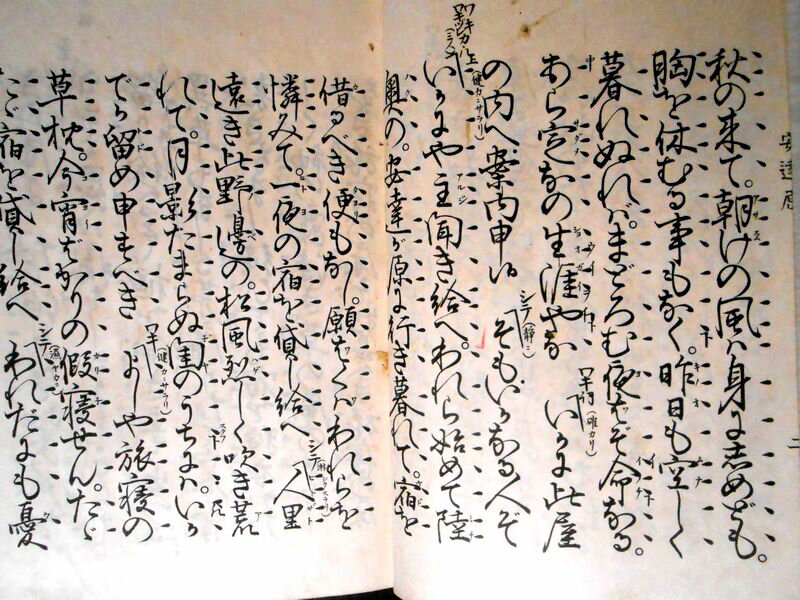 安達原
二
秋の来て。朝けの風は身にしめども。
胸を休むる事もなく。昨日も空しく
暮れぬれば。まどろむ夜はぞ命なる。
あら定なの生涯やな いかに此屋
の内へ案内申候 そもいかなる人ぞ
いかにや主聞き給へ。われら始めて陸
奥の。安達が原に行き暮れて。宿を
借るべき便もなし。願はくはわれらを
憐みて。一夜の宿を貸し給へ 人里
遠き此野邊の。松風烈しく吹き荒
れて。月影たまらぬ閨のうちには。いか
でか留め申すべき よしや旅寝の
草枕。今宵ばかりの假寝せん。たゞ
たゞ宿を貸し給へ われだにも憂